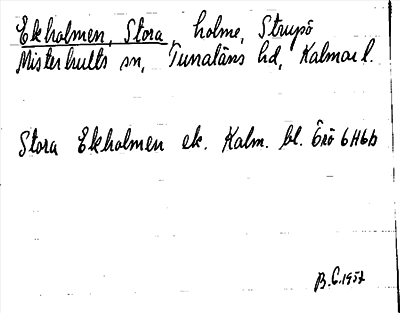 Ekholmen, Stora, holme, Strupö
Misterhults sn, Tunaläns hd, Kalmar l.
Stora Ekholmen ek. Kalm. bl. Örö 6H6b
B.G.1957